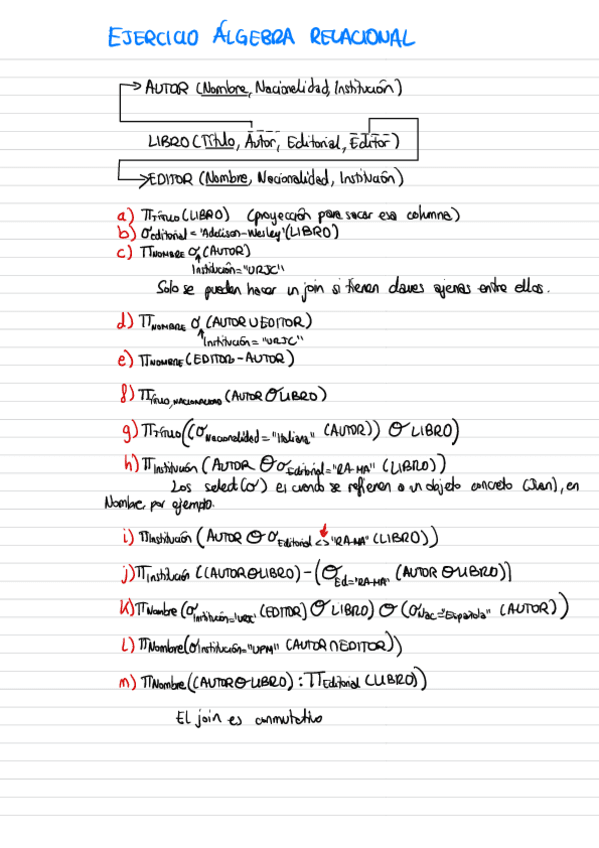 EJERCICIO ÁLGEBRA RELACIONAL
AUTOR (Nombre, Nacionalidad, Institución)
LIBRO (Título, Autor, Editorial, Editor)
EDITOR (Nombre, Nacionalidad, Institución)
a) π Título (LIBRO) (proyección para sacar esa columna)
b) σ editorial = 'Addison-Wesley' (LIBRO)
c) π NOMBRE σ (AUTOR)
Institución = "URJC"
Solo se pueden hacer un join si tienen claves ajenas entre ellos.
d) π NOMBRE σ (AUTOR U EDITOR)
Institución = "URJC"
e) π NOMBRE (EDITOR - AUTOR)
f) π Título, NACIONALIDAD (AUTOR Θ LIBRO)
g) π Título ((σ Nacionalidad = "Italiana" (AUTOR)) Θ LIBRO)
h) π Institución (AUTOR Θ σ Editorial = "RA-MA" (LIBRO))
Los select (σ) es cuando se refieren a un objeto concreto (Juan), en
Nombre, por ejemplo.
i) π Institución (AUTOR Θ σ Editorial <> "RA-MA" (LIBRO))
j) π Institución ((AUTOR Θ LIBRO) - (σ Ed = 'RA-MA' (AUTOR Θ LIBRO))
k) π Nombre (σ Institución = 'URJC' (EDITOR) Θ LIBRO) Θ (σ Nac = "Española" (AUTOR))
l) π Nombre (σ Institución = "UPM" (AUTOR ∩ EDITOR))
m) π Nombre ((AUTOR Θ LIBRO) : π Editorial (LIBRO))
El join es conmutativo